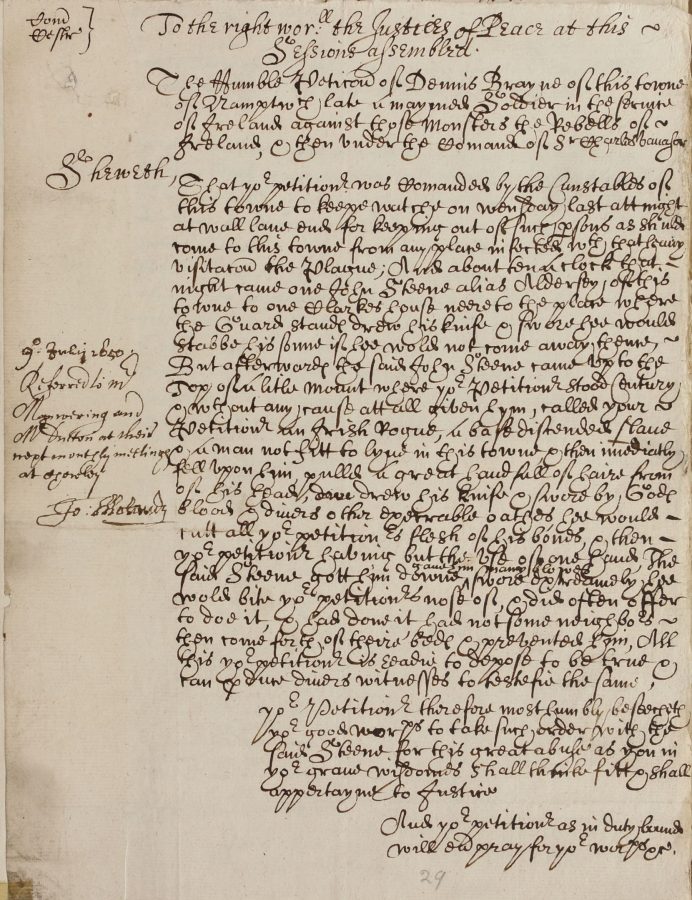 To the right worll the Justices of Peace at this
Sessions assembled.
The Humble Peticon of Dennis Brayne of this towne
of Namptwch late a maymed Soldier in the service
of Ireland against those Monsters the Rebells of
Ireland, & then under the Comand of Sr Charles
Sheweth,
That yor petitionr was Comanded by the Cunstables of
this towne to keepe watche on wensday last att night
at wall lane end for keeping out of such psons as should
come to this towne from any place infected wth that heavy
visitacon the Plague, And about ten a clock that
night came one John Steene alias Aldersey of this
towne to one Clarkes house neere to the place where
the Guard stands drew his knife & swore hee would
stabbe his sonne if hee wold not come away thence,
But afterwards the said John Steene came up to the
Top of a litle mount where yor Petitionr stood Sentury
& wthout any cause att all given hym, called your
Petitionr an Irish Rogue, a base discended slave
& a man not fitt to lyve in this towne & then imediatly
fell upon him, pulled a great handfull of haire from
of his head, drew his knife & swore by Gods
blood & divers other execrable oathes hee would
cutt all yor petitionrs flesh of his bones, & then
yor petitionr having but the use of one hand, The
said Steene gott him downe, gave him many blowes swore extreamely hee
wold bite yor petitionrs nose of, & did often offer
to doe it, & had done it had not some neighbors
then come forth of theire beds & prevented hym, All
this yor petitionr is readie to depose to be true &
can pduce divers witnesses to testefie the same,
yor Petitionr therefore most humbly beseecheth
yor good worps to take such order with the
said Steene for this great abuse as you in
yor grave wisdomes shall thinke fitt & shall
appertayne to Justice
And yor petitionr as in duty bound
will evr pray for yor worps &c.
9o. July 1650
Referred to mr
Manwering and
Mr Dutton at theire
next monthly meeting
at
29